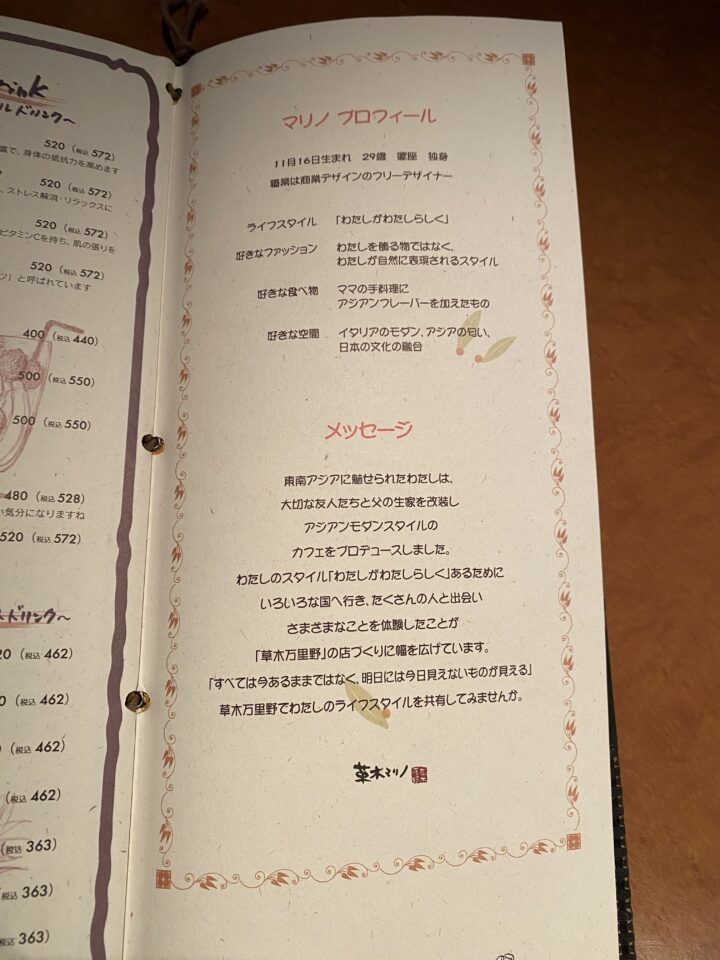 ルドリンク〜
520（税込 572）
で、身体の抵抗力を高めます
520（税込 572）
、ストレス解消・リラックスに
520（税込 572）
ビタミンCを持ち、肌の張りを
520（税込 572）
」と呼ばれています
400（税込 440）
500（税込 550）
500（税込 550）
480（税込 528）
い気分になりますね
520（税込 572）
ドリンク〜
20（税込 462）
0（税込 462）
（税込 462）
（税込 462）
（税込 363）
税込 363）
税込 363）
マリノ プロフィール
11月16日生まれ 29歳 蠍座 独身
職業は商業デザインのフリーデザイナー
ライフスタイル 「わたしがわたしらしく」
好きなファッション わたしを飾る物ではなく、
わたしが自然に表現されるスタイル
好きな食べ物 ママの手料理に
アジアンフレーバーを加えたもの
好きな空間 イタリアのモダン、アジアの匂い、
日本の文化の融合
メッセージ
東南アジアに魅せられたわたしは、
大切な友人たちと父の生家を改装し
アジアンモダンスタイルの
カフェをプロデュースしました。
わたしのスタイル「わたしがわたしらしく」あるために
いろいろな国へ行き、たくさんの人と出会い
さまざまなことを体験したことが
「草木万里野」の店づくりに幅を広げています。
「すべては今あるままではなく、明日には今日見えないものが見える」
草木万里野でわたしのライフスタイルを共有してみませんか。
草木マリノ